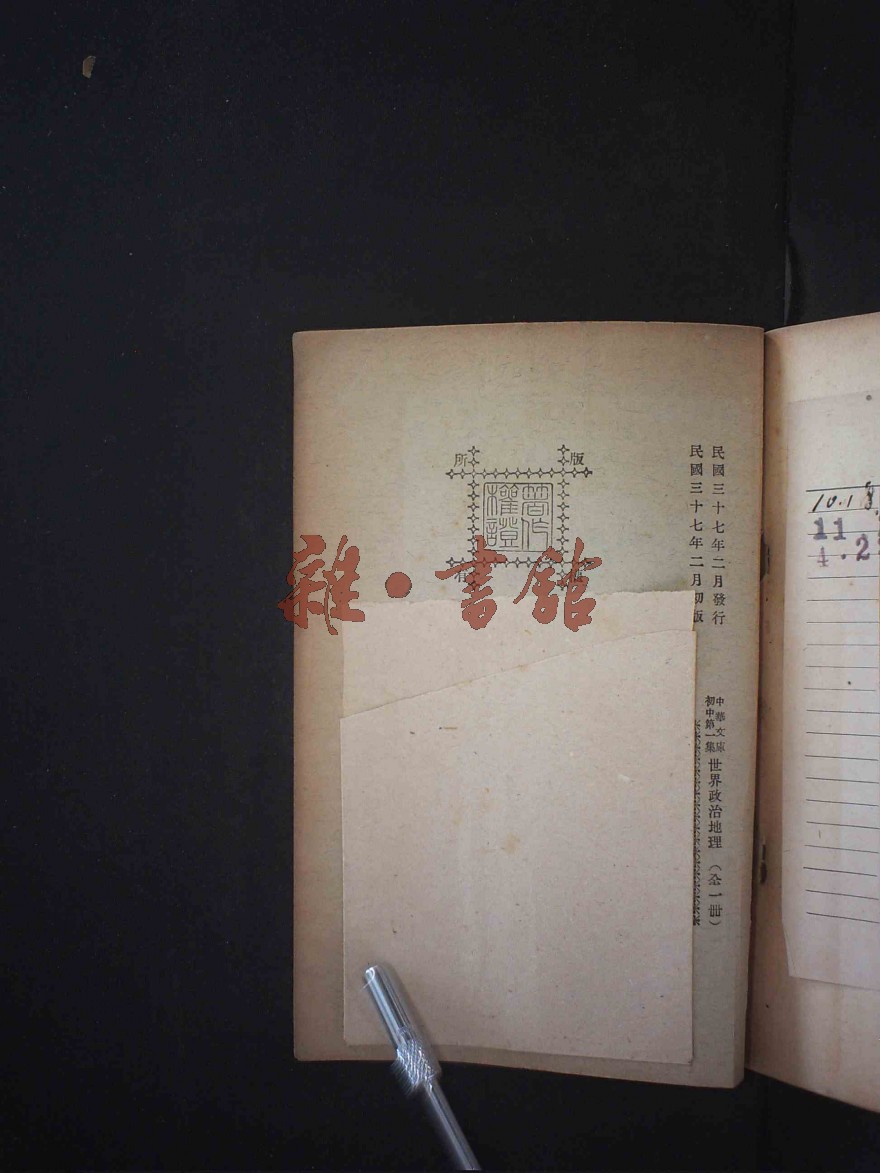 民國三十七年二月發行
民國三十七年二月初版
中華文庫
初中第一集
世界政治地理(全一冊)
版
所
有
著作
權證
雜·書館
10.18.
11
4.2